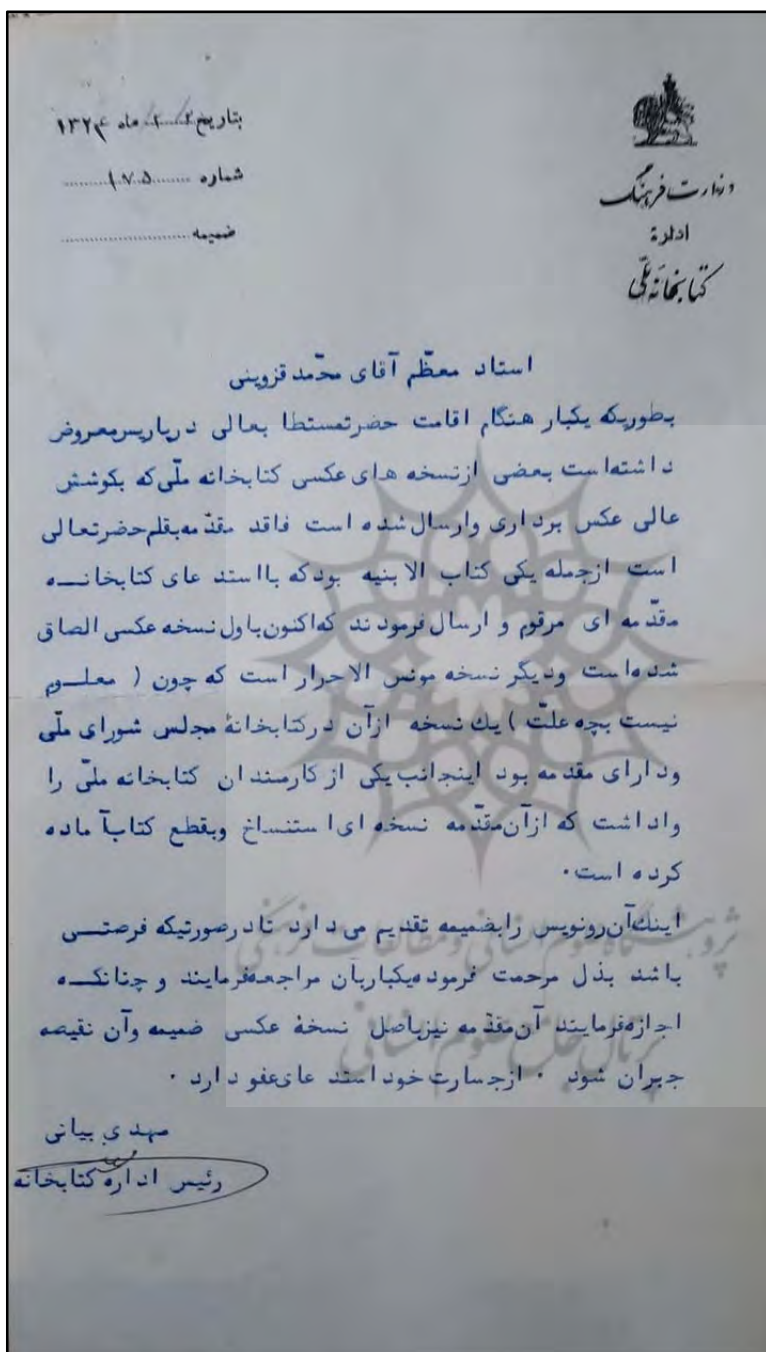 بتاریخ ۲/۲ ماه ۱۳۲۴
شماره ۱۷۵
ضمیمه
وزارت فرهنگ
ادارۀ
کتابخانه ملّی
استاد معظّم آقای محمّد قزوینی
بطوریکه یکبار هنگام اقامت حضرتمستطا بعالی درپاریس‌معروض
داشته‌است بعضی ازنسخه های عکسی کتابخانه ملّی‌که بکوشش
عالی عکس برداری وارسال‌شده است فاقد مقدّمه‌بقلم‌حضرتعالی
است ازجمله یکی کتاب الابنیه بودکه بااستدعای کتابخانـــه
مقدّمه ای مرقوم و ارسال فرمودند که‌اکنون‌باول نسخه عکسی الصاق
شده‌است ودیگر نسخه مونس الاحرار است که چون ( معلــوم
نیست بچه علّت ) یك نسخه ازآن درکتابخانۀ مجلس شورای ملّی
ودارای مقدمه بود اینجانب یکی از کارمندان کتابخانه ملّی را
واداشت که ازآن‌مقدّمه نسخه ای استنساخ وبقطع کتاب‌آماده
کرده است۰
اینك‌آن‌رونویس رابضمیمه تقدیم می دارد تادرصورتیکه فرصتــی
باشد بذل مرحمت فرموده‌یکباربآن مراجعه‌فرمایند و چنانکــه
اجازه‌فرمایند آن‌مقدّمه نیزباصل نسخۀ عکسی ضمیمه وآن نقیصه
جبران شود ۰ ازجسارت خود استدعای‌عفو دارد ۰
مهدی بیانی
رئیس اداره کتابخانه
پژوهشگاه علوم انسانی و مطالعات فرهنگی
پرتال جامع علوم انسانی